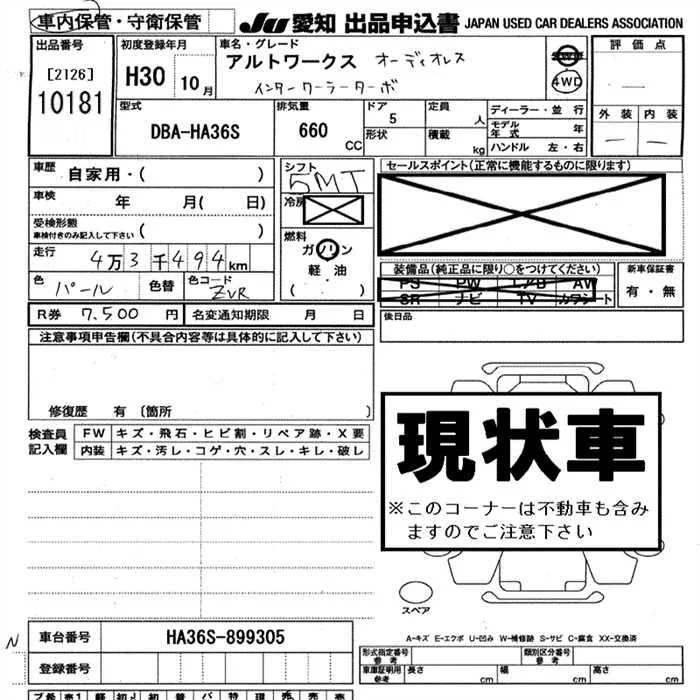 車内保管・守衛保管
JU 愛知 出品申込書 JAPAN USED CAR DEALERS ASSOCIATION
出品番号
[2126]
10181
初度登録年月
H30 10月
車名・グレード
アルトワークス オーディオレス
インタークーラーターボ
4WD
評価点
—
外装 内装
— —
型式
DBA-HA36S
排気量
660 CC
ドア
5
形状
定員 人
積載 kg
ディーラー・並行
モデル年式 年
ハンドル 左・右
車歴 自家用・( )
車検 年 月( 日)
受検形態
車検付きのみ記入して下さい ( )
走行 4万3千494km
色 パール 色替 色コード ZVR
シフト 5MT
冷房
燃料
ガソリン
軽油
( ・ )
セールスポイント(正常に機能するものに限ります)
装備品(純正品に限り○をつけてください)
PS PW エアB AW
SR ナビ TV カワシート
新車保証書
有・無
R券 7,500円 名変通知期限 月 日
後日品
注意事項申告欄(不具合内容等は具体的に記入して下さい)
修復歴 有 [箇所 ]
検査員記入欄
FW キズ・飛石・ヒビ割・リペア跡・X要
内装 キズ・汚レ・コゲ・穴・スレ・キレ・破レ
現状車
※このコーナーは不動車も含み
ますのでご注意下さい
スペア
A-キズ E-エクボ U-凹み W-補修跡 S-サビ C-腐食 XX-交換済
N 車台番号 HA36S-899305
登録番号
形式指定番号 参考
類別区分番号 参考
車庫証明用 参考 長さ cm 幅 cm 高さ cm